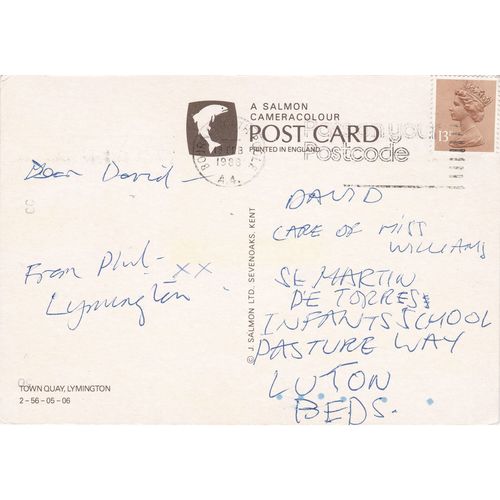 A SALMON
CAMERACOLOUR
POST CARD
PRINTED IN ENGLAND
Postcode
1988
A.A.
13P
Dear David -
From Phil - XX
Lymington
DAVID
CARE OF MISS
WILLIAMS
St MARTIN
DE TORRES
INFANTS SCHOOL
PASTURE WAY
LUTON
BEDS.
© J. SALMON LTD. SEVENOAKS, KENT
TOWN QUAY, LYMINGTON
2-56-05-06